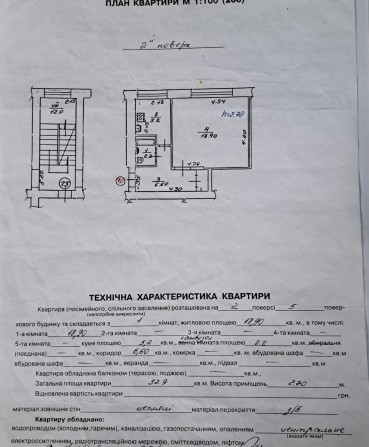 ПЛАН КВАРТИРИ М 1:100 (200)
2й поверх
2.18
4.54
H=2.70
4
18.90
1
2.2
3
6.60
4.30
ТЕХНІЧНА ХАРАКТЕРИСТИКА КВАРТИРИ
Квартира (посімейного, спільного заселення) розташована на 2 поверсі 5 повер-
(непотрібне викреслити)
хового будинку та складається з 1 кімнат, житловою площею 18,90 кв. м., в тому числі:
1-а кімната 18,90 2-га кімната — 3-я кімната — 4-та кімната —
5-та кімната — кухні площею 5,2 кв. м., ванна кімната 2.2 кв. м., вбиральня
(поєднана) — кв.м., коридор 6,60 кв.м., комірка — кв. м. вбудована шафа — кв.м
вбудована шафа — кв.м., веранда — кв.м., підвал — кв.м.
Квартира обладнана балконом (терасою, лоджією) — кв.м.,
Загальна площа квартири 32.9 кв.м. Висота приміщень 2.70 м.
Відновлена вартість квартири грн.
матеріал зовнішніх стін матеріал перекриття з/б
Квартиру обладнано:
водопроводом (холодним, гарячим), каналізацією, газопостачанням, опаленням центральне
(вказати яким)
електроосвітленням, радіотрансляційною мережею, сміттєзводом, ліфтом